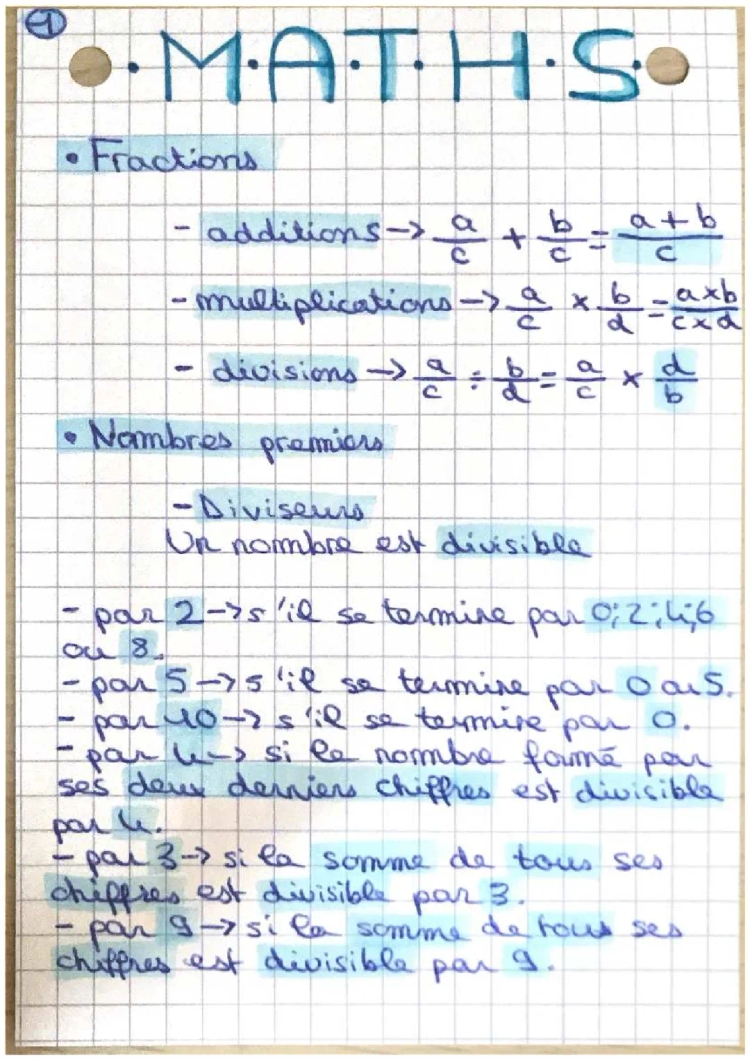 1
M.A.T.H.S
• Fractions
- additions → a/c + b/c = a+b/c
- multiplications → a/c × b/d = a×b/c×d
- divisions → a/c ÷ b/d = a/c × d/b
• Nombres premiers
- Diviseurs
Un nombre est divisible
- par 2 → s'il se termine par 0;2;4;6
ou 8.
- par 5 → s'il se termine par 0 ou 5.
- par 10 → s'il se termine par 0.
- par 4 → si le nombre formé par
ses deux derniers chiffres est divisible
par 4.
- par 3 → si la somme de tous ses
chiffres est divisible par 3.
- par 9 → si la somme de tous ses
chiffres est divisible par 9.